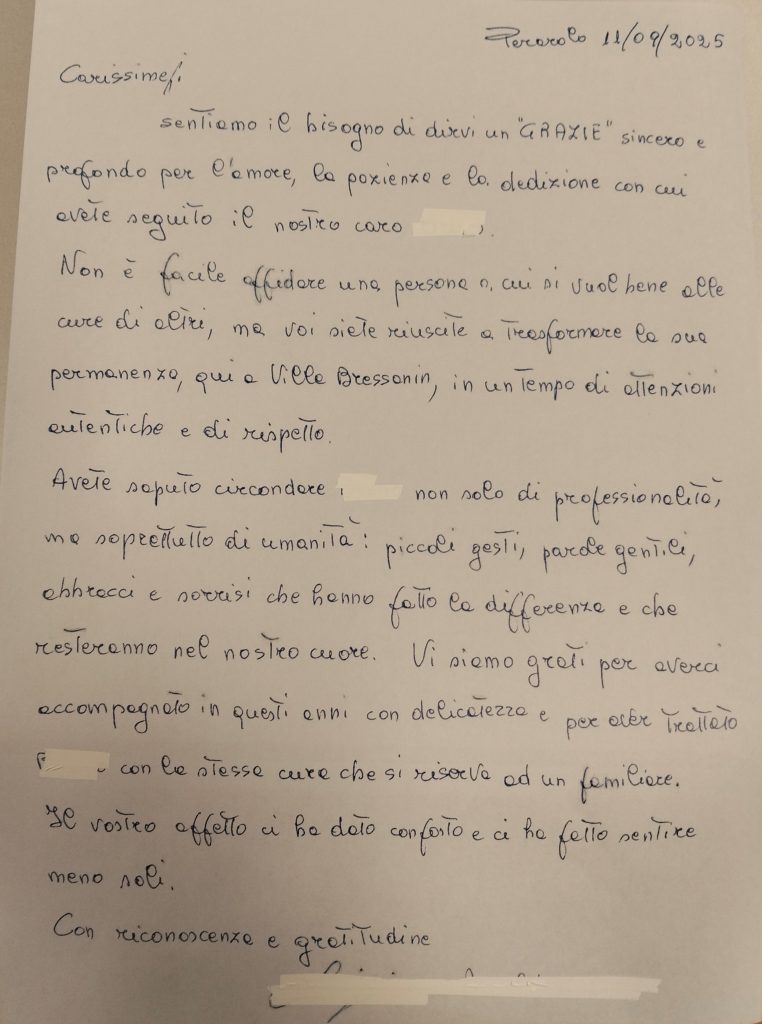 Perarolo 11/09/2025
Carissime/i
sentiamo il bisogno di dirvi un "GRAZIE" sincero e
profondo per l'amore, la pazienza e la dedizione con cui
avete seguito il nostro caro
Non è facile affidare una persona a cui si vuol bene alle
cure di altri, ma voi siete riuscite a trasformare la sua
permanenza, qui a Villa Bressanin, in un tempo di attenzioni
autentiche e di rispetto.
Avete saputo circondare non solo di professionalità,
ma soprattutto di umanità: piccoli gesti, parole gentili,
abbracci e sorrisi che hanno fatto la differenza e che
resteranno nel nostro cuore. Vi siamo grati per averci
accompagnato in questi anni con delicatezza e per aver trattato
con la stessa cura che si riserva ad un familiare.
Il vostro affetto ci ha dato conforto e ci ha fatto sentire
meno soli.
Con riconoscenza e gratitudine